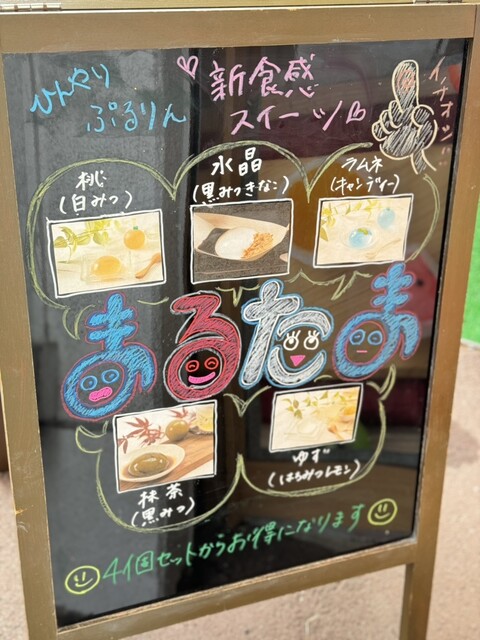 ひんやり
ぷるりん
新食感
スイーツ
イチオシ!!
桃
(白みつ)
水晶
(黒みつきなこ)
ラムネ
(キャンディー)
まるたま
抹茶
(黒みつ)
ゆず
(はちみつレモン)
4個セットからお得になります